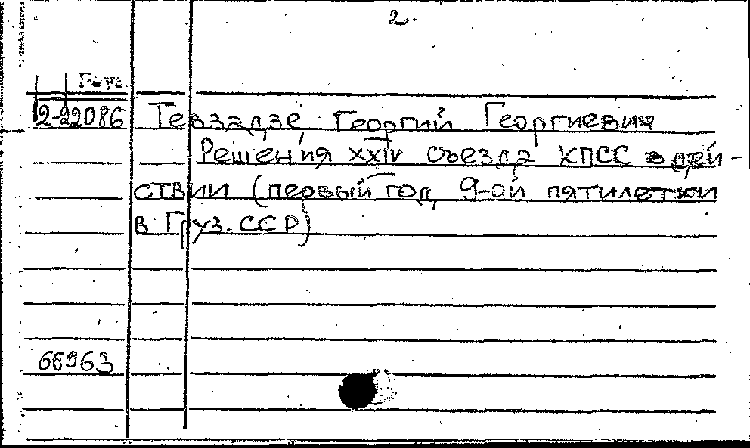 2.
2-22086 Тевзадзе, Георгий Георгиевич
Решения XXIV съезда КПСС в дей-
ствии (первый год 9-ой пятилетки
в Груз. ССР)
66963